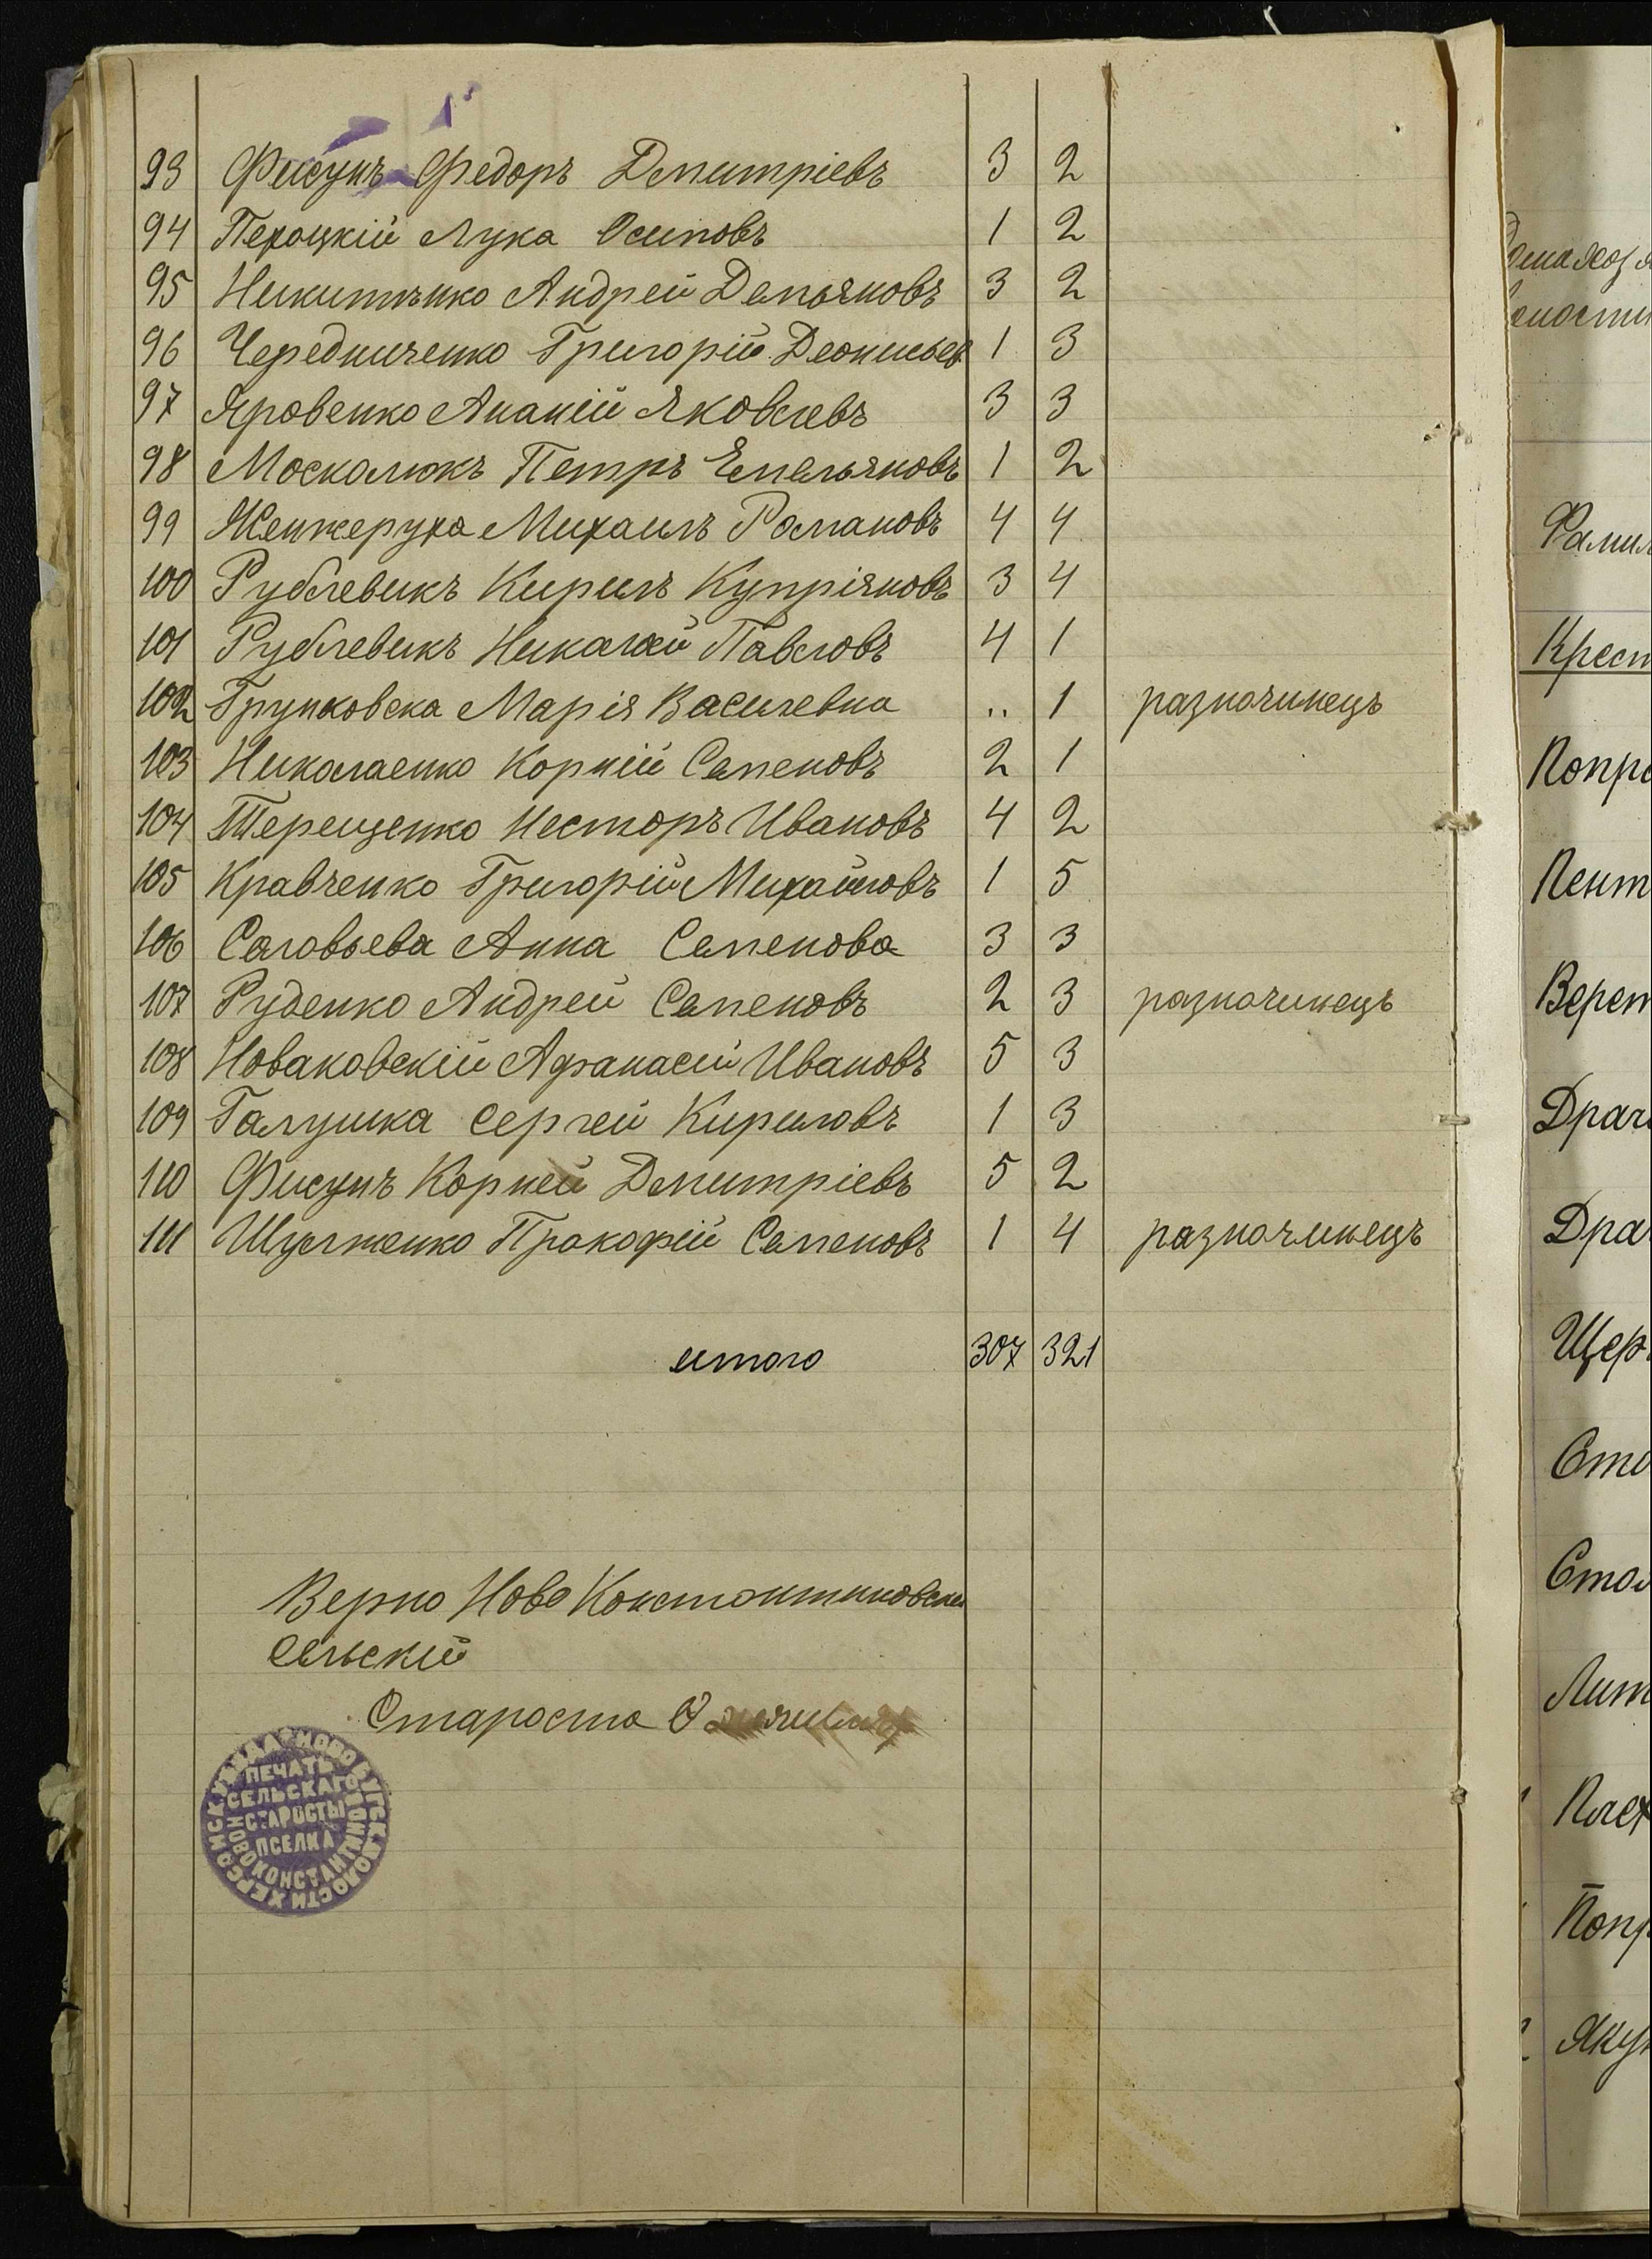 93 Фисунъ Федоръ Дмитріевъ 3 2
94 Пехоцкій Лука Осиповъ 1 2
95 Никитѣнко Андрей Демьяновъ 3 2
96 Чередниченко Григорій Деонисьев 1 3
97 Яровенко Ананій Яковлевъ 3 3
98 Москалюкъ Петръ Емельяновъ 1 2
99 Женжеруха Михаилъ Романовъ 4 4
100 Рублевикъ Кирилъ Купріяновъ 3 4
101 Рублевикъ Николай Павловъ 4 1
102 Грунковска Марія Василевна .. 1 разночинецъ
103 Николаенко Корній Семеновъ 2 1
104 Терещенко Несторъ Ивановъ 4 2
105 Кравченко Григорій Михайловъ 1 5
106 Саловьева Анна Семенова 3 3
107 Руденко Андрей Семеновъ 2 3 разночинецъ
108 Новаковскій Афанасій Ивановъ 5 3
109 Галушка Сергей Кириловъ 1 3
110 Фисунъ Корней Дмитріевъ 5 2
111 Шулженко Прокофій Семеновъ 1 4 разночинецъ
итого 307 321
Верно Ново Константиновский
Сельскій
Староста
ПЕЧАТЬ
СЕЛЬСКАГО
СТАРОСТЫ
ПСЕЛКА
НОВОКОНСТАНТИНОВ
ХЕРСОНСК УѢЗДА НОВО БУГСК ВОЛОСТИ
Фамил
Крест
Попро
Пент
Верет
Драч
Дра
Щер
Сто
Лит
Плех
Попр
Яку